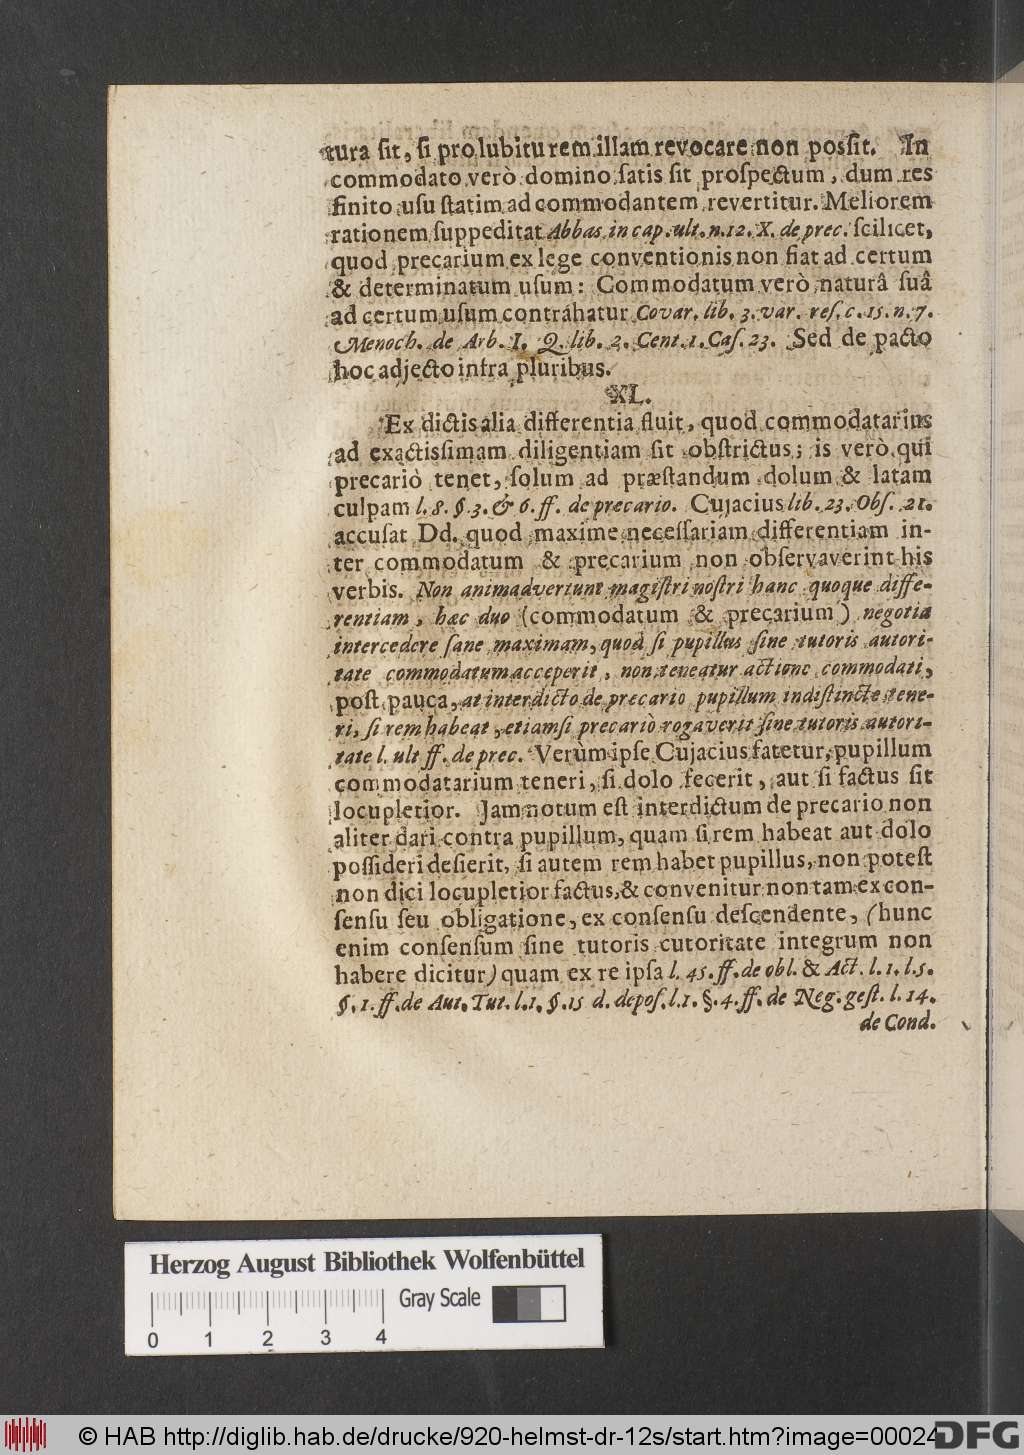 tura ſit, ſi pro lubitu rem illam revocare non poſſit. In
commodato verò domino ſatis ſit proſpectum, dum res
finito uſu ſtatim ad commodantem revertitur. Meliorem
rationem ſuppeditat Abbas in cap. ult. n. 12. X. de prec. ſcilicet,
quod precarium ex lege conventionis non fiat ad certum
& determinatum uſum: Commodatum verò naturâ ſuâ
ad certum uſum contrahatur Covar. lib. 3. var. reſ. c. 15. n. 7.
Menoch. de Arb. I. Q. lib. 2. Cent. 1. Caſ. 23. Sed de pacto
hoc adjecto infra pluribus.
XL.
Ex dictis alia differentia fluit, quod commodatarius
ad exactisſimam diligentiam ſit obſtrictus; is verò qui
precariò tenet, ſolum ad præſtandum dolum & latam
culpam l. 8. §. 3. & 6. ff. de precario. Cujacius lib. 23. Obſ. 21.
accuſat Dd. quod maxime neceſſariam differentiam in-
ter commodatum & precarium non obſervaverint his
verbis. Non animadvertunt magiſtri noſtri hanc quoque diffe-
rentiam, hæc duo (commodatum & precarium) negotia
intercedere ſane maximam, quod ſi pupillus ſine tutoris autori-
tate commodatum acceperit, non teneatur actione commodati,
poſt pauca, at interdicto de precario pupillum indiſtincte tene-
ri, ſi rem habeat, etiamſi precariò rogaverit ſine tutoris autori-
tate l. ult ff. de prec. Verùm ipſe Cujacius fatetur, pupillum
commodatarium teneri, ſi dolo fecerit, aut ſi factus ſit
locupletior. Jam notum eſt interdictum de precario non
aliter dari contra pupillum, quam ſi rem habeat aut dolo
poſſideri deſierit, ſi autem rem habet pupillus, non poteſt
non dici locupletior factus, & convenitur non tam ex con-
ſenſu ſeu obligatione, ex conſenſu deſcendente, (hunc
enim conſenſum ſine tutoris cutoritate integrum non
habere dicitur) quam ex re ipſa l. 45. ff. de obl. & Act. l. 1. l. 5.
§. 1. ff. de Aut. Tut. l. 1. §. 15 d. depoſ. l. 1. §. 4. ff. de Neg. geſt. l. 14.
de Cond.
Herzog August Bibliothek Wolfenbüttel
Gray Scale
0 1 2 3 4
© HAB http://diglib.hab.de/drucke/920-helmst-dr-12s/start.htm?image=00024
DFG